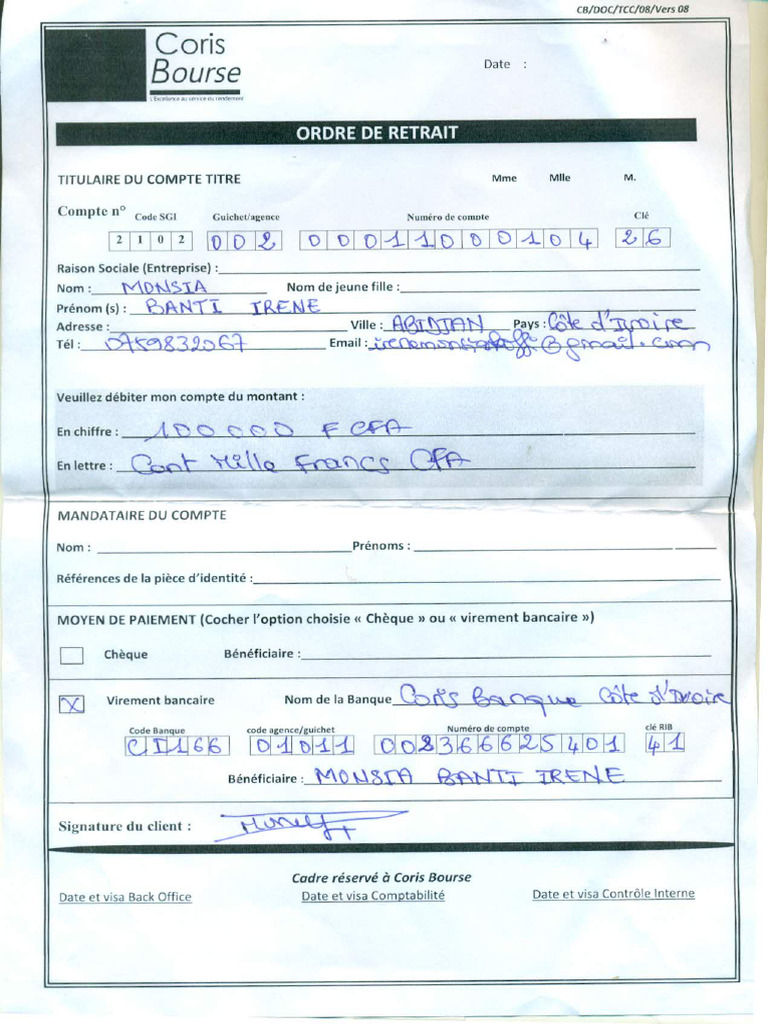 CB/DOC/TCC/08/Vers 08
Coris
Bourse
L'Excellence au service du rendement
Date :
ORDRE DE RETRAIT
TITULAIRE DU COMPTE TITRE Mme Mlle M.
Compte n° Code SGI Guichet/agence Numéro de compte Clé
2102 002 000110000104 26
Raison Sociale (Entreprise) :
Nom : MONSIA Nom de jeune fille :
Prénom (s) : BANTI IRENE
Adresse : Ville : ABIDJAN Pays : Côte d'Ivoire
Tél : 0759832067 Email : @gmail.com
Veuillez débiter mon compte du montant :
En chiffre : 100000 F CFA
En lettre : Cent Mille Francs CFA
MANDATAIRE DU COMPTE
Nom : Prénoms :
Références de la pièce d'identité :
MOYEN DE PAIEMENT (Cocher l'option choisie « Chèque » ou « virement bancaire »)
Chèque Bénéficiaire :
X Virement bancaire Nom de la Banque Coris Banque Côte d'Ivoire
Code Banque code agence/guichet Numéro de compte clé RIB
CI166 01011 008366625401 41
Bénéficiaire : MONSIA BANTI IRENE
Signature du client :
Cadre réservé à Coris Bourse
Date et visa Back Office Date et visa Comptabilité Date et visa Contrôle Interne